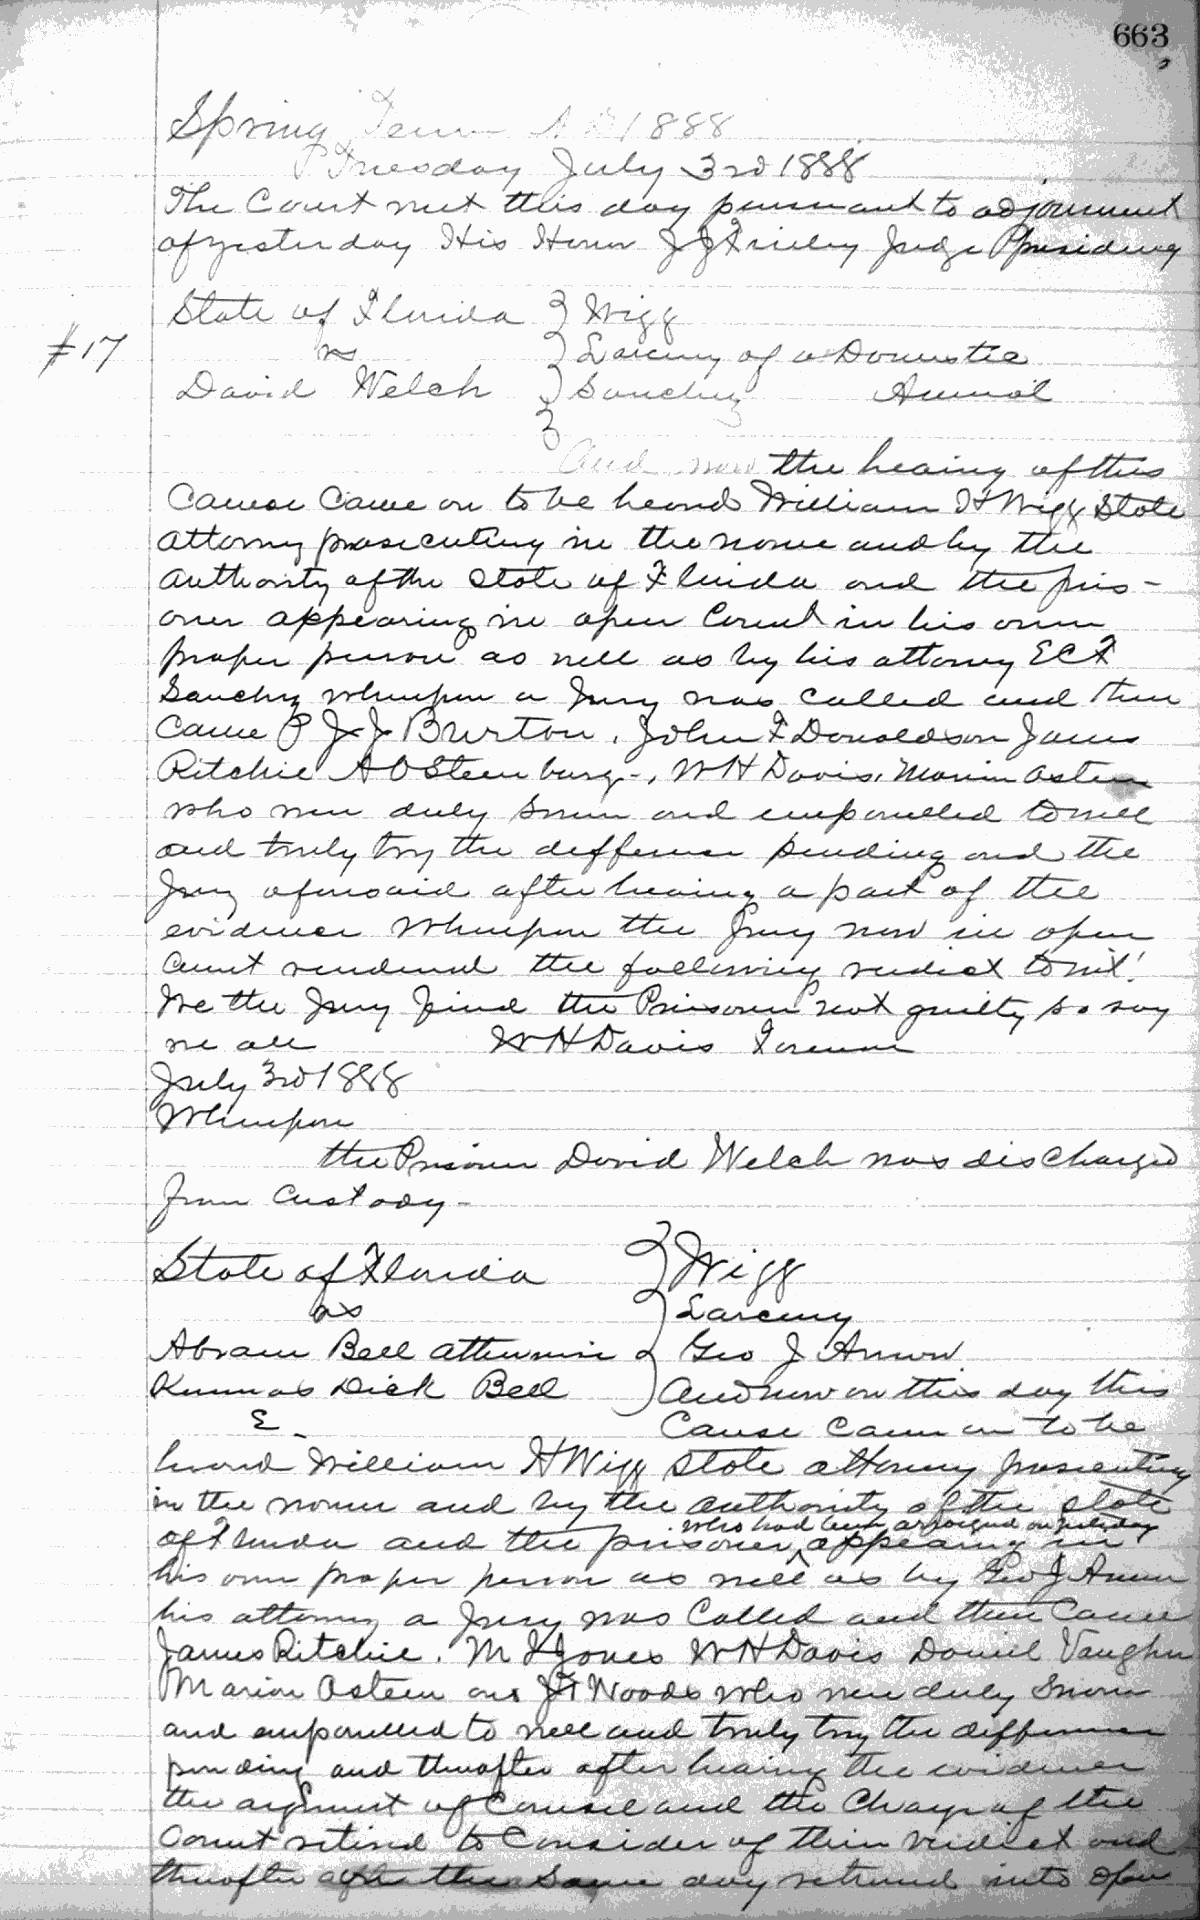 663
Spring Term A D 1888
Tuesday July 3rd 1888
The Court met this day pursuant to adjournment
of yesterday His Honor J J Finley Judge Presiding
State of Florida } Wigg
#17 vs } Larceny of a Domestic
David Welch } Sanchez Animal
And now the hearing of this
Cause Came on to be heard William H Wigg State
attorney prosecuting in the name and by the
authority of the State of Florida and the pris-
oner appearing in open Court in his own
proper person as well as by his attorney E C F
Sanchez whereupon a Jury was called and then
Came P J J Burton, John F Donaldson James
Ritchie A O Steenburg, W H Davis, Marion Osteen
who were duly sworn and empanelled to well
and truly try the difference pending and the
Jury aforesaid after hearing a part of the
evidence Whereupon the Jury now in open
Court rendered the following verdict towit!
We the Jury find the Prisoner not guilty so say
we all W H Davis Foreman
July 3rd 1888
Whereupon
the Prisoner David Welch was discharged
from Custody -
State of Florida } Wigg
vs } Larceny
Abram Bell otherwise } Geo J Arnow
Known as Dick Bell } And now on this day this
Cause Came on to be
heard William H Wigg State attorney prosecuting
in the name and by the authority of the state
who had been arraigned on yesterday
of Florida and the prisoner ^ appearing in
his own proper person as well as by Geo J Arnow
his attorney a Jury was Called and then Came
James Ritchie, M L Jones W H Davis Daniel Vaughn
Marion Osteen and Woods who were duly Sworn
and empanelled to well and truly try the difference
pending and thereafter after hearing the evidence
the argument of Counsel and the Charge of the
Court retired to Consider of their Verdict and
thereafter the same day returned into open